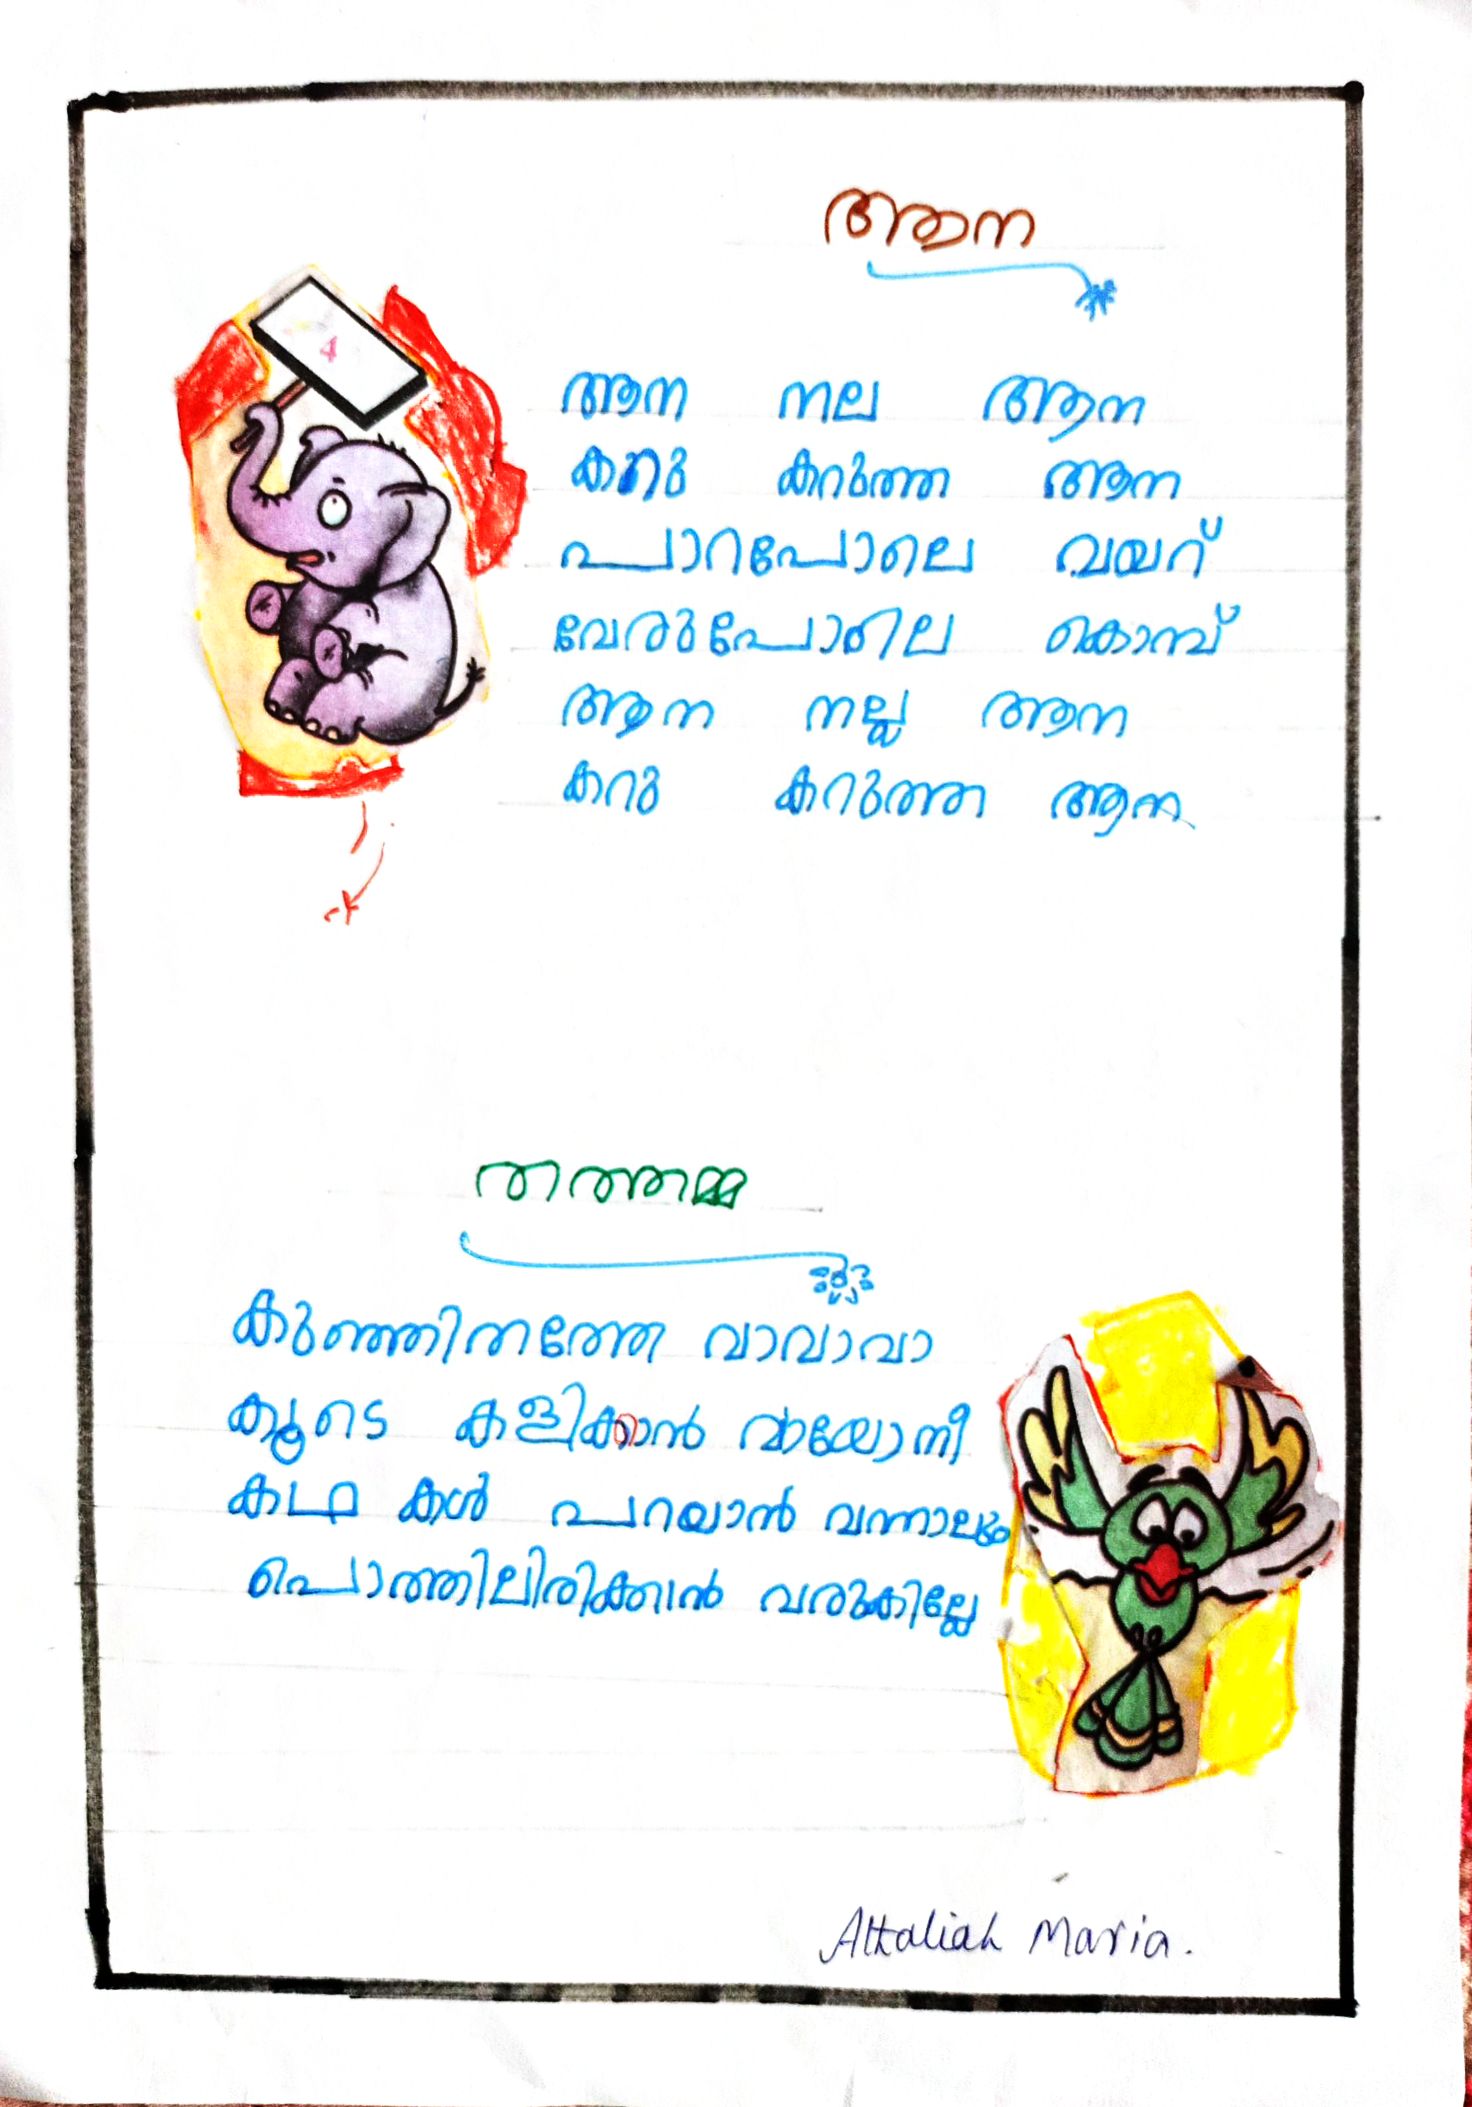 ആന
4
ആന നല ആന
കറു കറുത്ത ആന
പാറപോലെ വയറ്
വേരുപോലെ കൊമ്പ്
ആന നല്ല ആന
കറു കറുത്ത ആന
തത്തമ്മ
കുഞ്ഞിതത്തേ വാവാവാ
കൂടെ കളിക്കാൻ വായോനീ
കഥ കൾ പറയാൻ വന്നാലും
പൊത്തിലിരിക്കാൻ വരുകില്ലേ
Athaliah Maria.